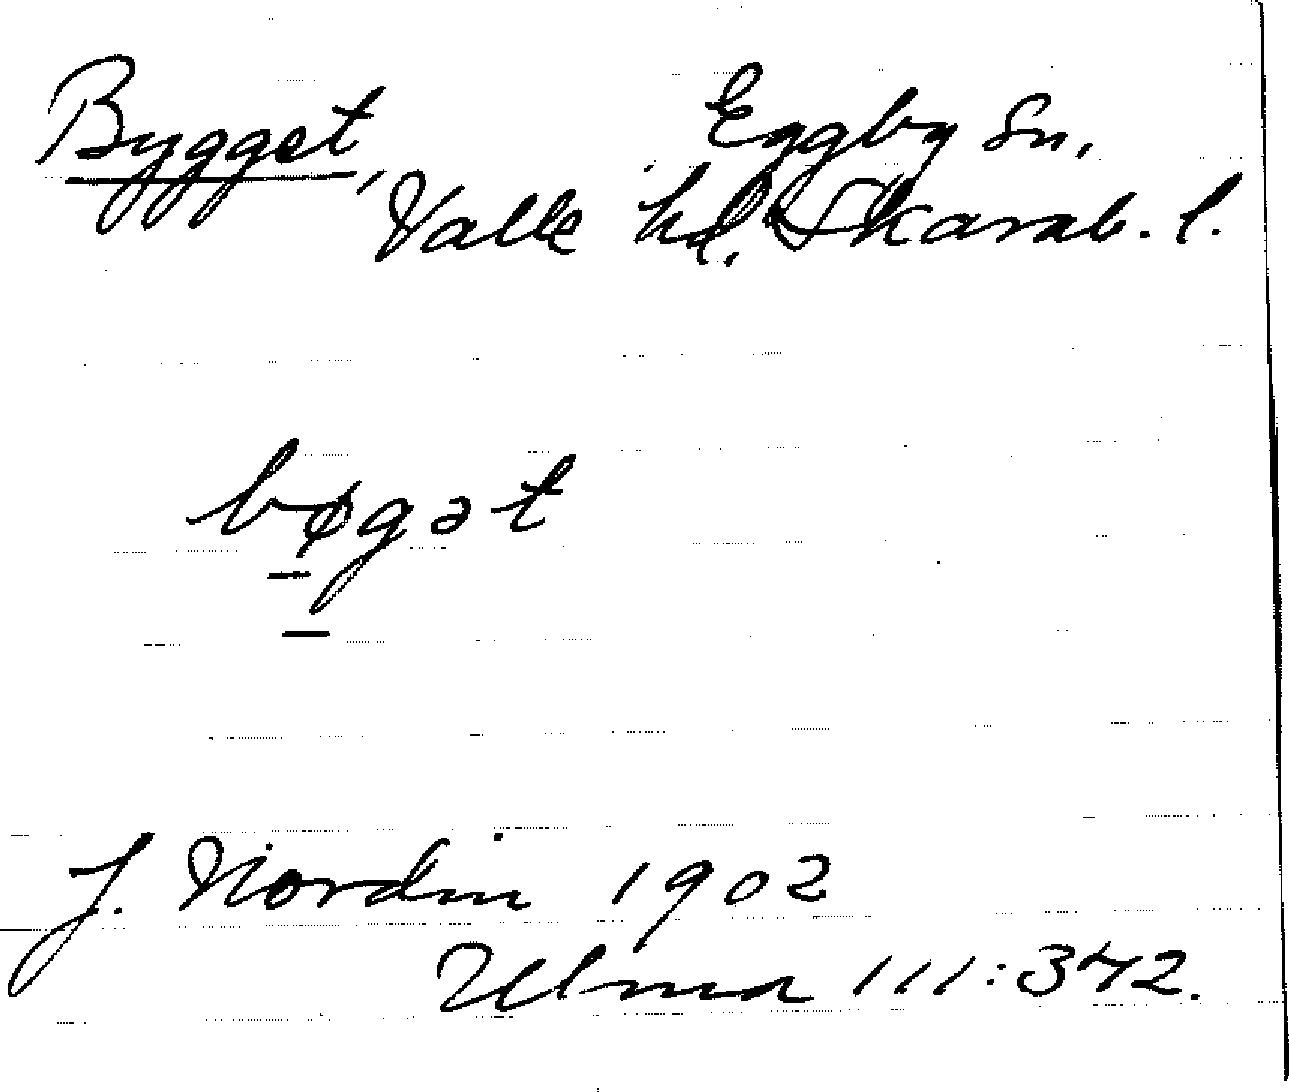 Bygget, Eggby Sn,
Valle hd, Skarab. l.
bøgət
J. Nordin 1902
Ulma 111:342.